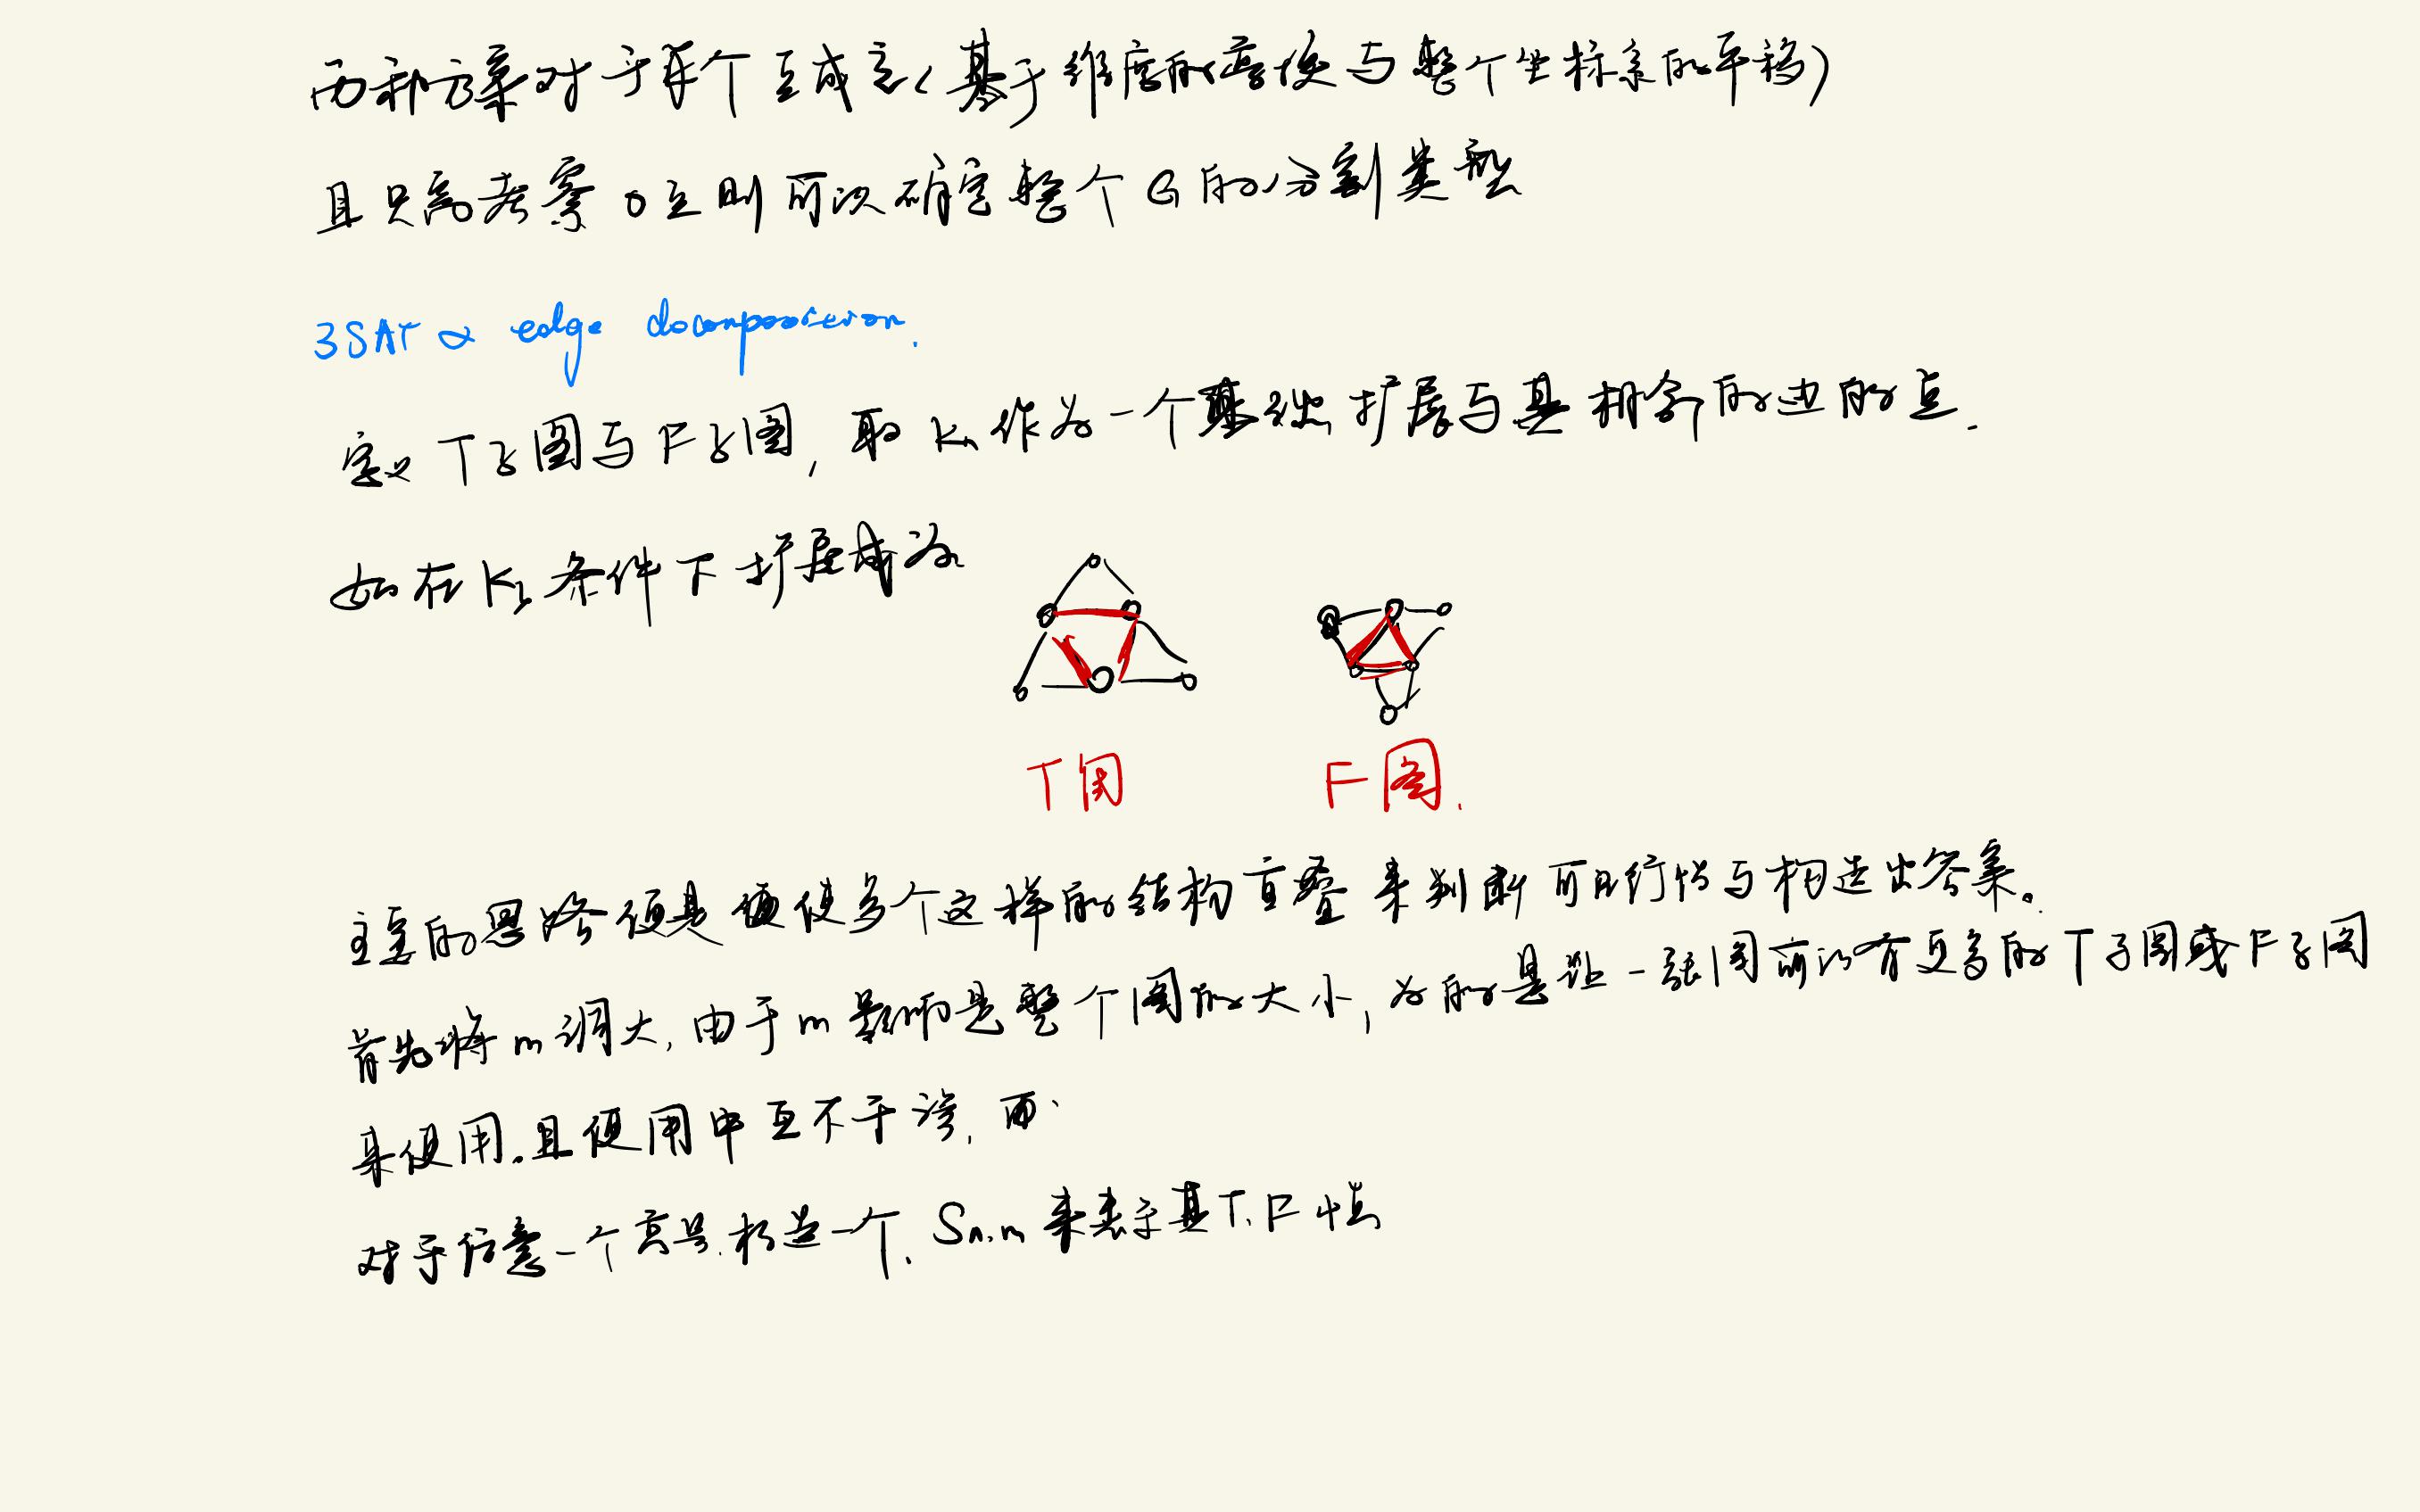 两种方案对于每个点成立(基于维度的替换与整个坐标系的平移)
且只需考察0点则可以确定整个G的分割类型
3SAT & edge decomposition.
定义T子图与F子图, 取Kn作为一个基础扩展与其相邻的边的点.
如在K3条件下扩展成为
T图 F图.
主要的思路便是使多个这样的结构重叠来判断可行性与构造出答案。
首先将m调大, 由于m影响是整个图的大小, 为的是让一张图可以有更多的T子图或F子图
来使用.且使用中互不干涉, 而
对于任意一个 构造一个. Sn,m来表示其T.F性